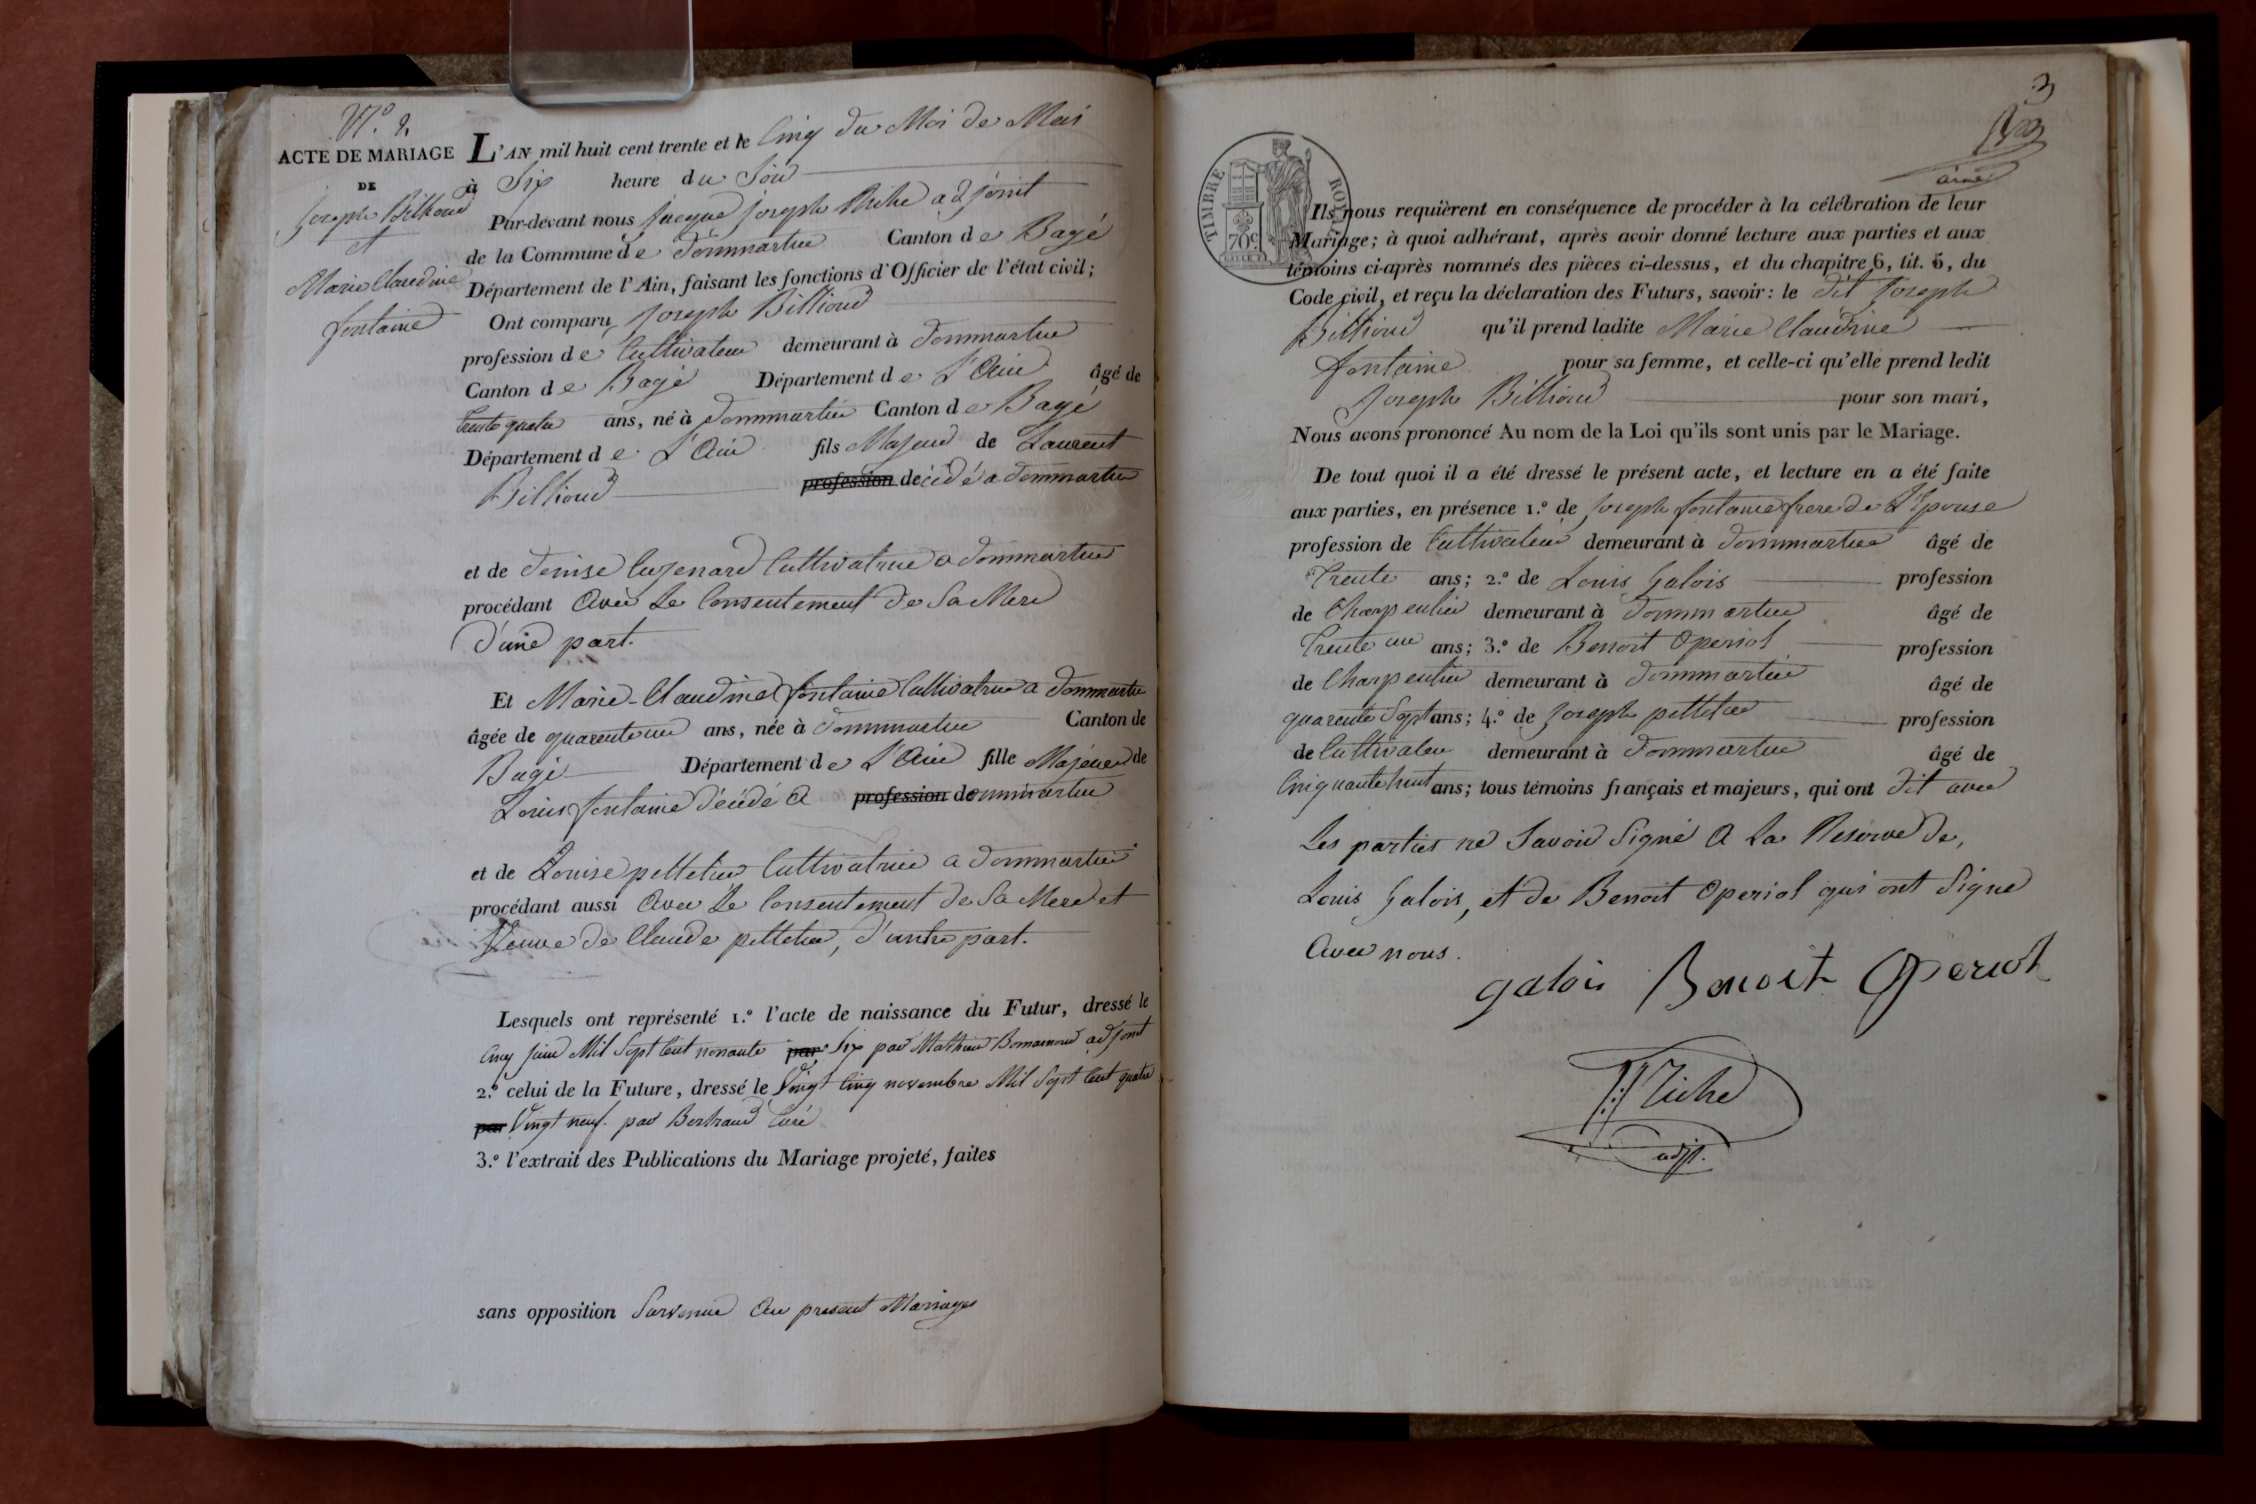 N.º 9.
ACTE DE MARIAGE
DE
Joseph Billioud
et
Marie Claudine
fontaine
L'AN mil huit cent trente et le Cinq du Moi de Mai
à Six heure du Soir
Par-devant nous Jacque Joseph Riche adjoint
de la Commune de Dommartin Canton de Bagé
Département de l'Ain, faisant les fonctions d'Officier de l'état civil;
Ont comparu Joseph Billioud
profession de Cultivateur demeurant à Dommartin
Canton de Bagé Département de L'Ain âgé de
trente quatre ans, né à Dommartin Canton de Bagé
Département de L'Ain fils Majeur de Laurent
Billioud profession décédé a Dommartin
et de Denise Cuzenard Cultivatrice a Dommartin
procédant Avec Le Consentement de Sa Mere
D'une part.
Et Marie-Claudine fontaine Cultivatrice a Dommartin
âgée de quarente un ans, née à Dommartin Canton de
Bagé Département de L'Ain fille Majeure de
Louis fontaine Décédé A profession dommartin
et de Louise pelletier Cultivatrice a Dommartin
procédant aussi Avec Le Consentement de Sa Mere et
Veuve de Claude pelletier, d'autre part.
Lesquels ont représenté 1.º l'acte de naissance du Futur, dressé le
Cinq juin Mil Sept Cent nonante par Six par Mathieu adjoint
2.º celui de la Future, dressé le Vingt Cinq novembre Mil Sept Cent quatre
par Vingt neuf. par Bertrand Curé
3.º l'extrait des Publications du Mariage projeté, faites
sans opposition Survenue Au present Mariage
3
TIMBRE ROYAL
70 c
Ils nous requièrent en conséquence de procéder à la célébration de leur
Mariage; à quoi adhérant, après avoir donné lecture aux parties et aux
témoins ci-après nommés des pièces ci-dessus, et du chapitre 6, tit. 5, du
Code civil, et reçu la déclaration des Futurs, savoir: le dit Joseph
Billioud qu'il prend ladite Marie Claudine
fontaine pour sa femme, et celle-ci qu'elle prend ledit
Joseph Billioud pour son mari,
Nous avons prononcé Au nom de la Loi qu'ils sont unis par le Mariage.
De tout quoi il a été dressé le présent acte, et lecture en a été faite
aux parties, en présence 1.º de Joseph fontaine frere de L'Epouse
profession de Cultivateur demeurant à Dommartin âgé de
Trente ans; 2.º de Louis Galois profession
de Charpentier demeurant à Dommartin âgé de
Trente un ans; 3.º de Benoit Operiol profession
de Charpentier demeurant à Dommartin âgé de
quarente Sept ans; 4.º de Joseph pelletier profession
de Cultivateur demeurant à Dommartin âgé de
Cinquante huit ans; tous témoins français et majeurs, qui ont Dit avec
Les parties ne Savoir Signé A La Reserve de,
Louis Galois, et de Benoit Operiol qui ont Signé
Avec nous.
galois Benoit Operiol
Riche
adjt.